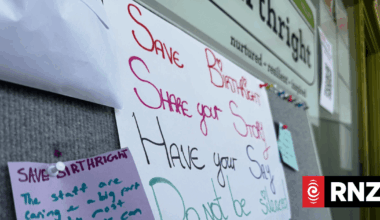 birthright
nurtured • resilient •
Save Birthright
Share your Story
Have your Say
Do not be silenced
SAVE BIRTHRIGHT
The staff are
caring a big part
most
can
RNZ